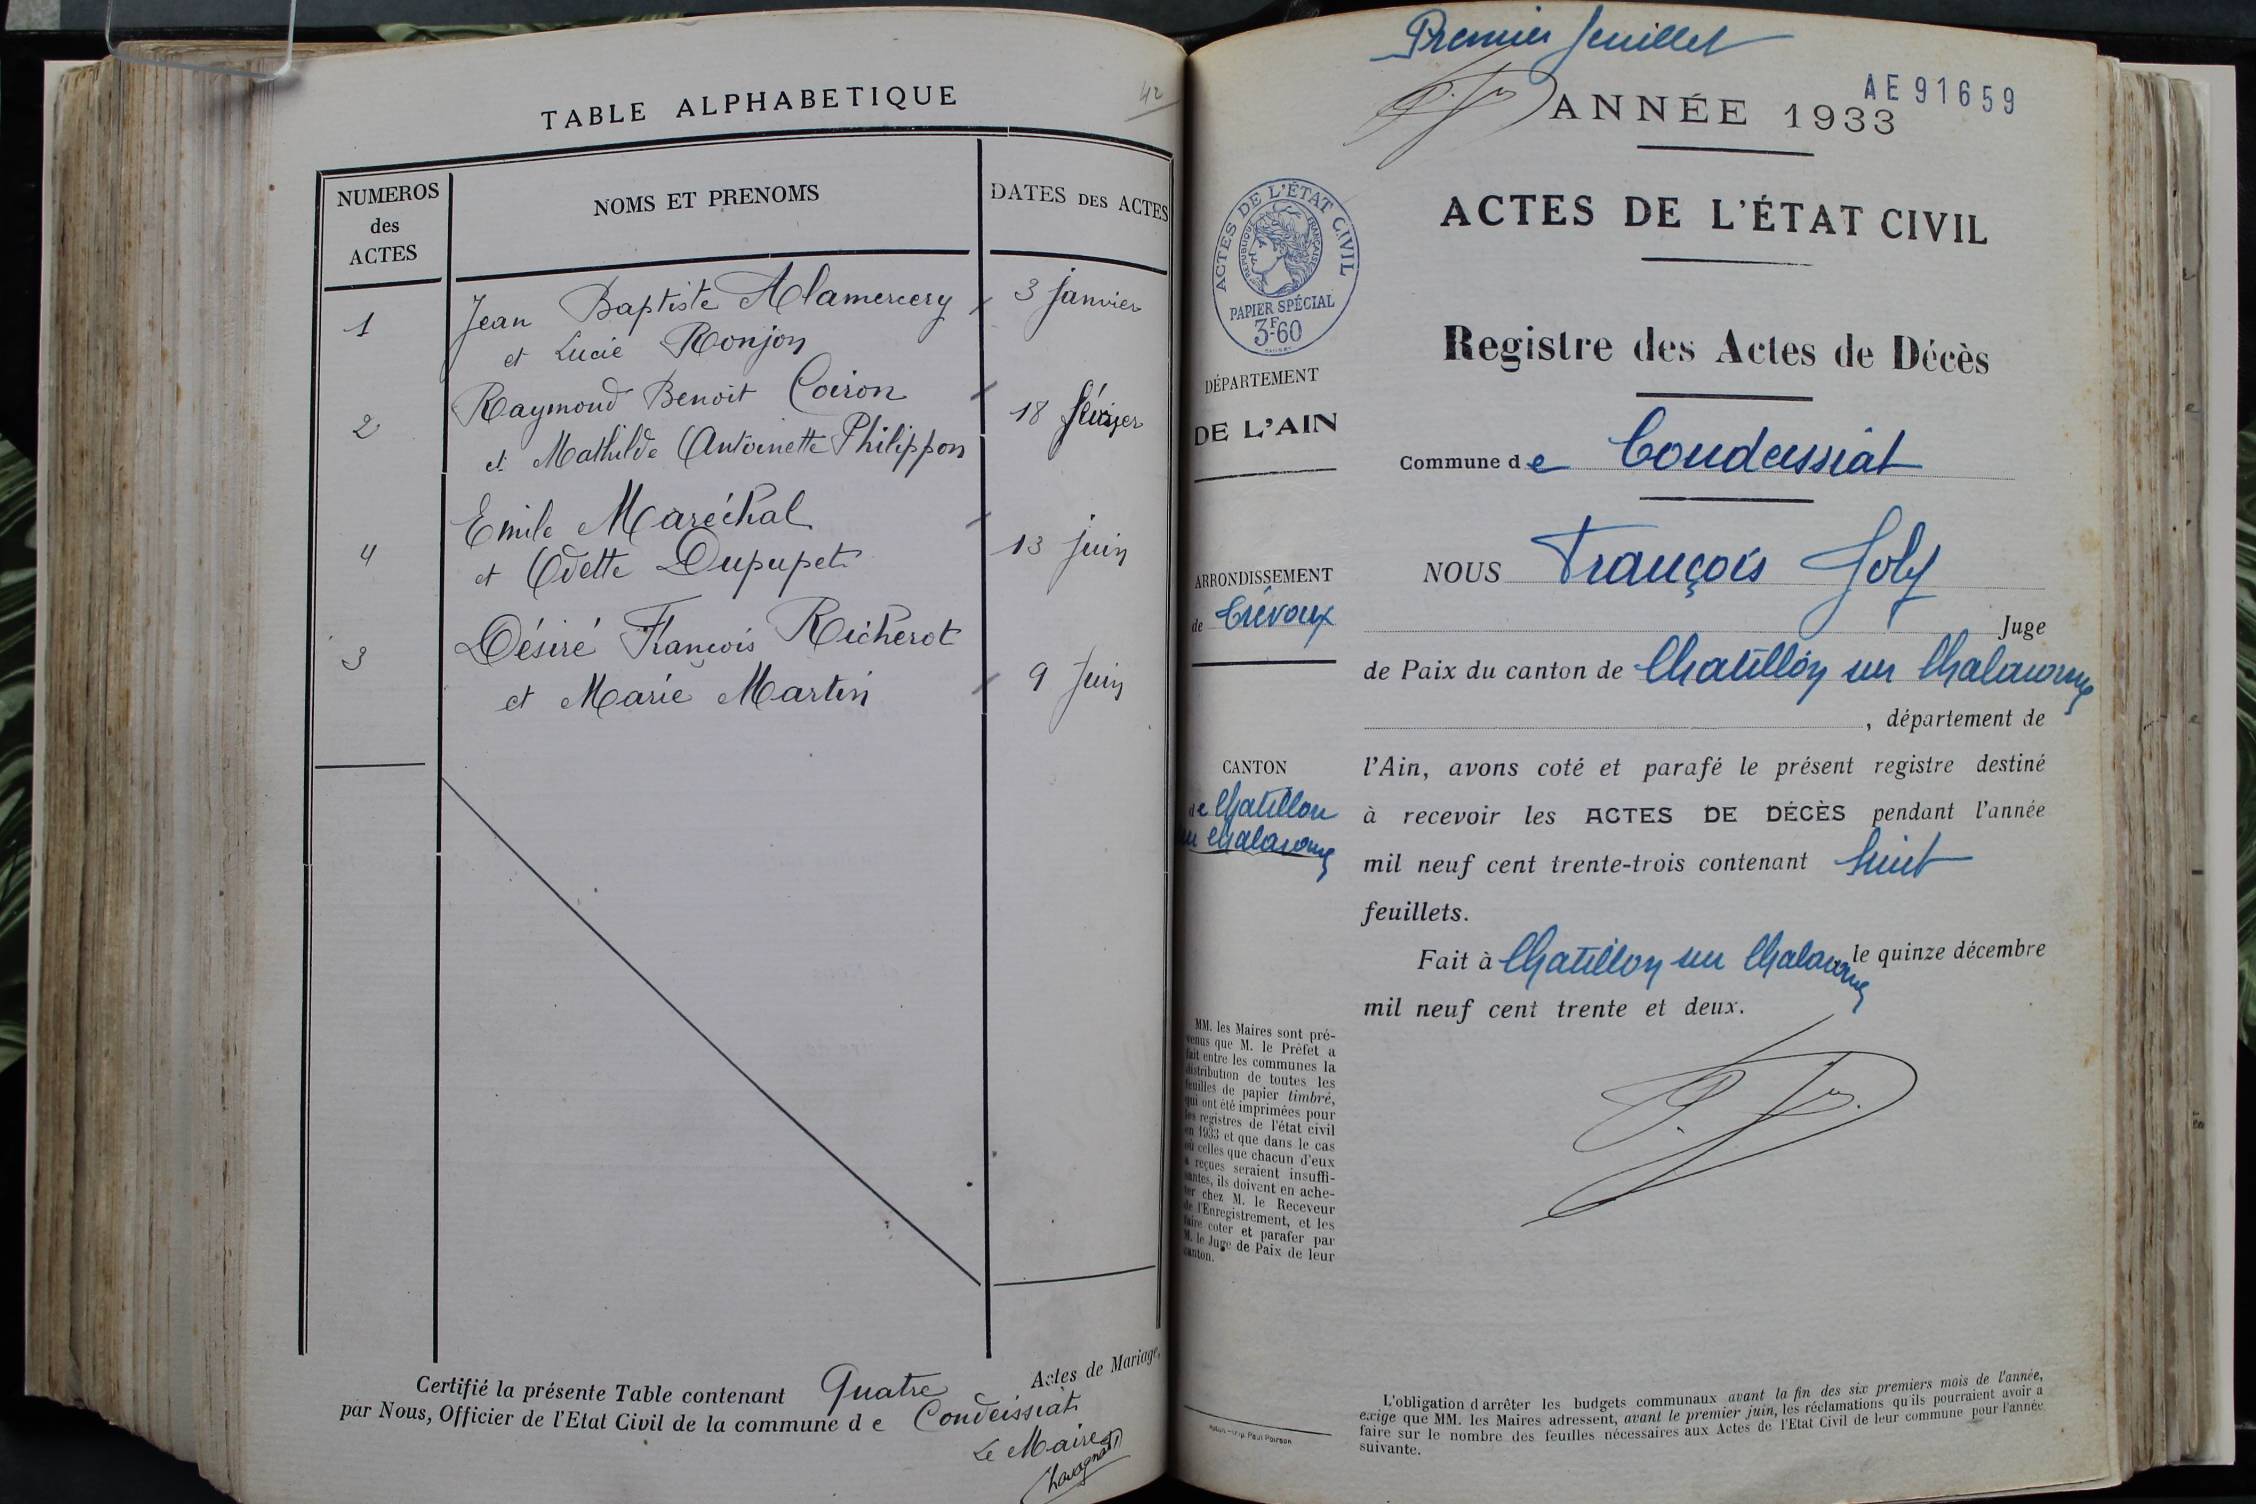 42
TABLE ALPHABETIQUE
NUMEROS
des
ACTES
NOMS ET PRENOMS
DATES DES ACTES
1
Jean Baptiste Alamercery
et Lucie Ronjon
3 janvier
2
Raymond Benoit Coiron
et Mathilde Antoinette Philippon
18 février
4
Emile Maréchal
et Odette Dupupet
13 juin
3
Désiré François Richerot
et Marie Martin
9 juin
Certifié la présente Table contenant Quatre Actes de Mariage,
par Nous, Officier de l'Etat Civil de la commune de Condeissiat
Le Maire
Premier feuillet
AE 91659
ANNÉE 1933
ACTES DE L'ÉTAT CIVIL
RÉPUBLIQUE FRANÇAISE
PAPIER SPÉCIAL
3F.60
ACTES DE L'ÉTAT CIVIL
Registre des Actes de Décès
DÉPARTEMENT
DE L'AIN
Commune de Condeissiat
ARRONDISSEMENT
de Trévoux
NOUS François Joly
Juge
de Paix du canton de Chatillon sur Chalaronne
, département de
CANTON
de Chatillon
sur Chalaronne
l'Ain, avons coté et parafé le présent registre destiné
à recevoir les ACTES DE DÉCÈS pendant l'année
mil neuf cent trente-trois contenant huit
feuillets.
Fait à Chatillon sur Chalaronne le quinze décembre
mil neuf cent trente et deux.
MM. les Maires sont pré-
venus que M. le Préfet a
fait entre les communes la
distribution de toutes les
feuilles de papier timbré,
qui ont été imprimées pour
les registres de l'état civil
en 1933 et que dans le cas
où celles que chacun d'eux
a reçues seraient insuffi-
santes, ils doivent en ache-
ter chez M. le Receveur
de l'Enregistrement, et les
faire coter et parafer par
M. le Juge de Paix de leur
canton.
Imp. Paul Poirson
L'obligation d'arrêter les budgets communaux avant la fin des six premiers mois de l'année,
exige que MM. les Maires adressent, avant le premier juin, les réclamations qu'ils pourraient avoir a
faire sur le nombre des feuilles nécessaires aux Actes de l'Etat Civil de leur commune pour l'année
suivante.